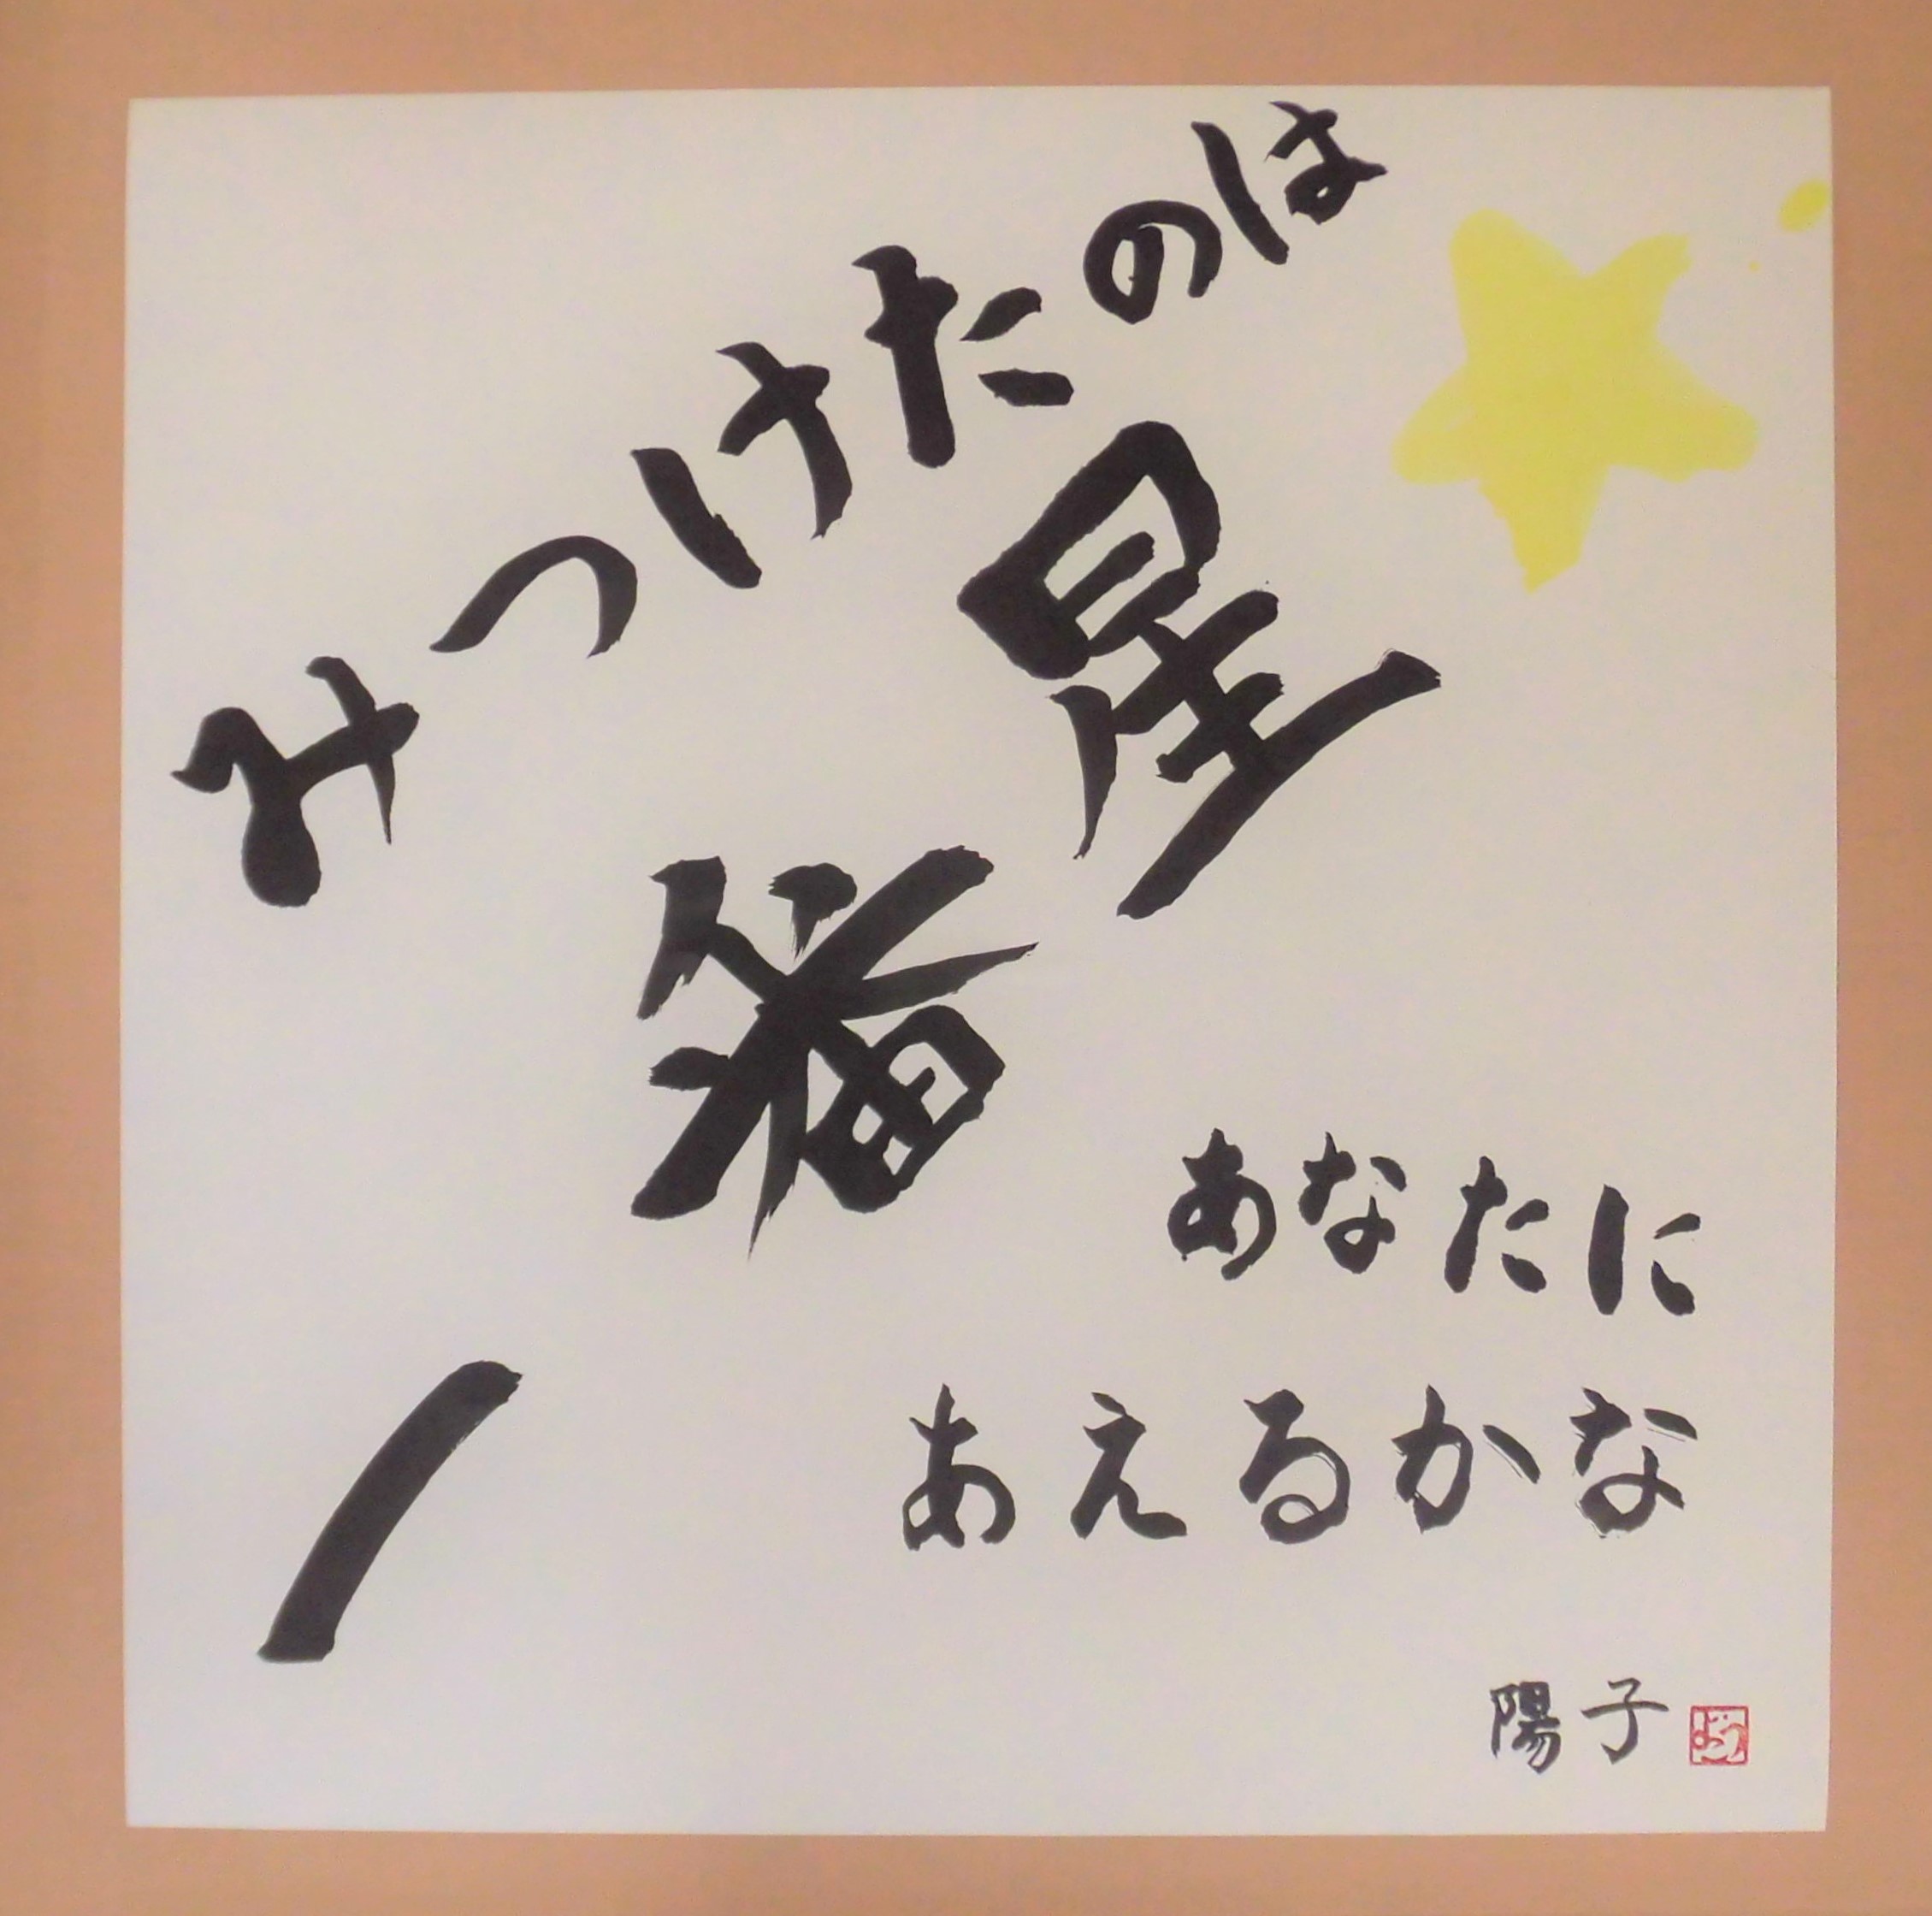 みつけたのは
一番星
あなたに
あえるかな
陽子 よう